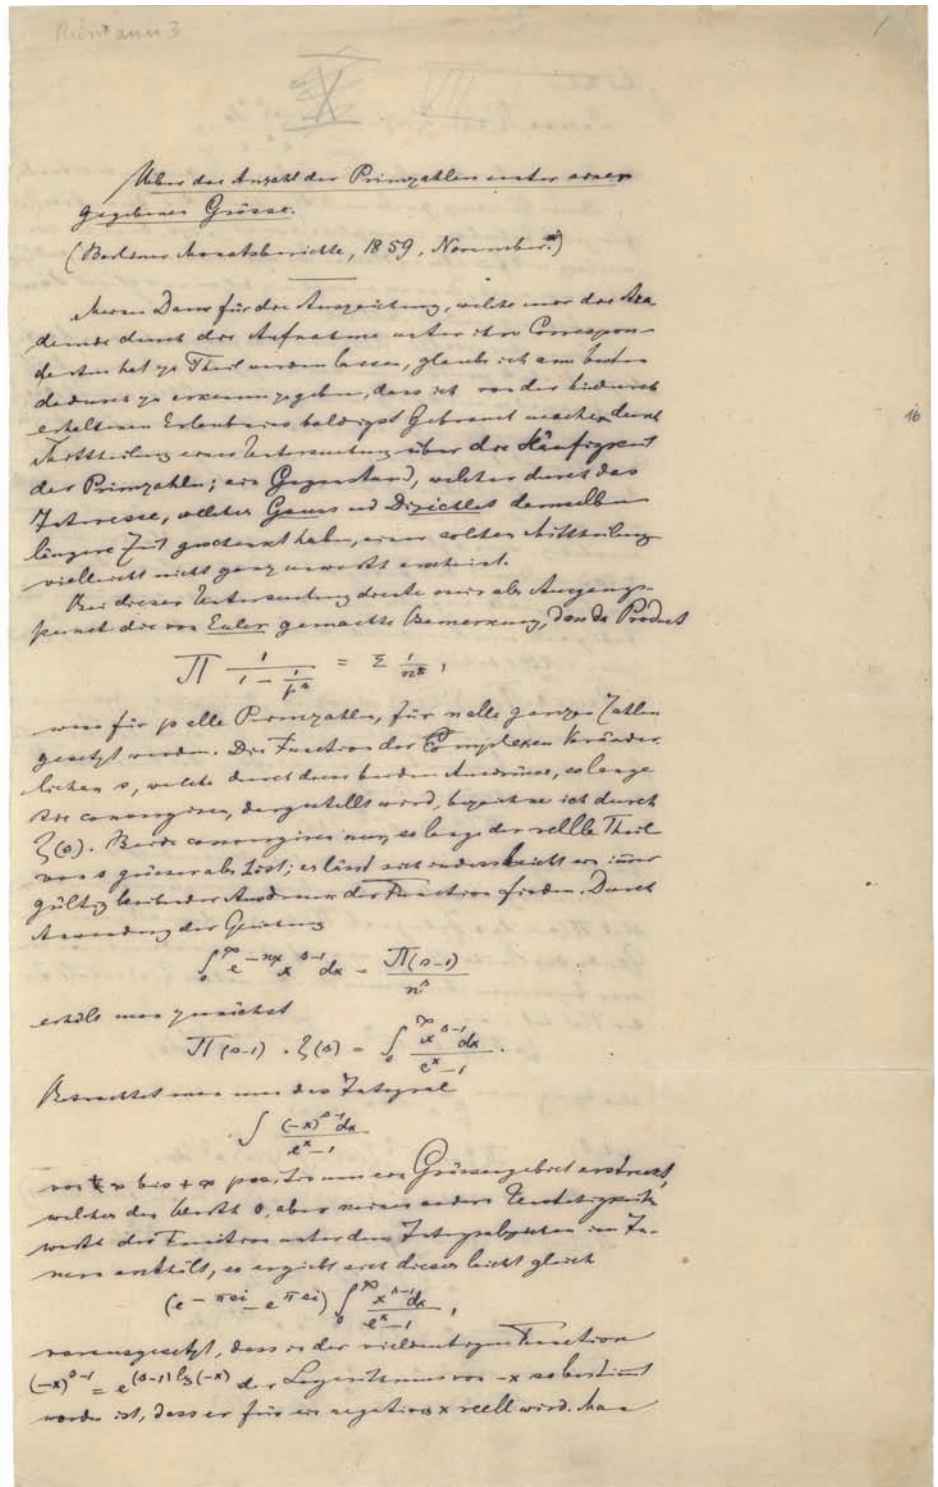 Riemann 3
1
Ueber die Anzahl der Primzahlen unter einer
gegebenen Grösse.
(Berliner Monatsberichte, 1859, November.)
Meinen Dank für die Auszeichnung, welche mir die Aka
demie durch die Aufnahme unter ihre Correspon-
denten hat zu Theil werden lassen, glaube ich am besten
dadurch zu erkennen zu geben, dass ich von der hiedurch
erhaltenen Erlaubniss baldigst Gebrauch mache durch
16
Mittheilung einer Untersuchung über die Häufigkeit
der Primzahlen; ein Gegenstand, welcher durch das
Interesse, welches Gauss und Dirichlet demselben
längere Zeit geschenkt haben, einer solchen Mittheilung
vielleicht nicht ganz unwerth erscheint.
Bei dieser Untersuchung diente mir als Ausgangs-
punct die von Euler gemachte Bemerkung, dass das Product
∏ 1/(1 − 1/p^s) = Σ 1/n^s,
wenn für p alle Primzahlen, für n alle ganzen Zahlen
gesetzt werden. Die Function der complexen Veränder
lichen s, welche durch diese beiden Ausdrücke, so lange
sie convergiren, dargestellt wird, bezeichne ich durch
ζ(s). Beide convergiren nur, so lange der reelle Theil
von s grösser als 1 ist; es lässt sich indess leicht ein immer
gültig bleibender Ausdruck der Function finden. Durch
Anwendung der Gleichung
∫_0^∞ e^{−nx} x^{s−1} dx = ∏(s−1)/n^s
erhält man zunächst
∏(s−1) . ζ(s) = ∫_0^∞ x^{s−1}dx/(e^x−1).
Betrachtet man nun das Integral
∫ (−x)^{s−1}dx/(e^x−1)
von ∞ bis +∞ positiv um ein Grössengebiet erstreckt,
welches den Werth 0, aber keinen andern Unstetigkeits
werth der Function unter dem Integralzeichen im In-
nern enthält, so ergiebt sich dieses leicht gleich
(e^{−πsi} − e^{πsi}) ∫_0^∞ x^{s−1}dx/(e^x−1),
vorausgesetzt, dass in der vieldeutigen Function
(−x)^{s−1} = e^{(s−1) lg(−x)} der Logarithmus von −x so bestimmt
worden ist, dass er für ein negatives x reell wird. Man